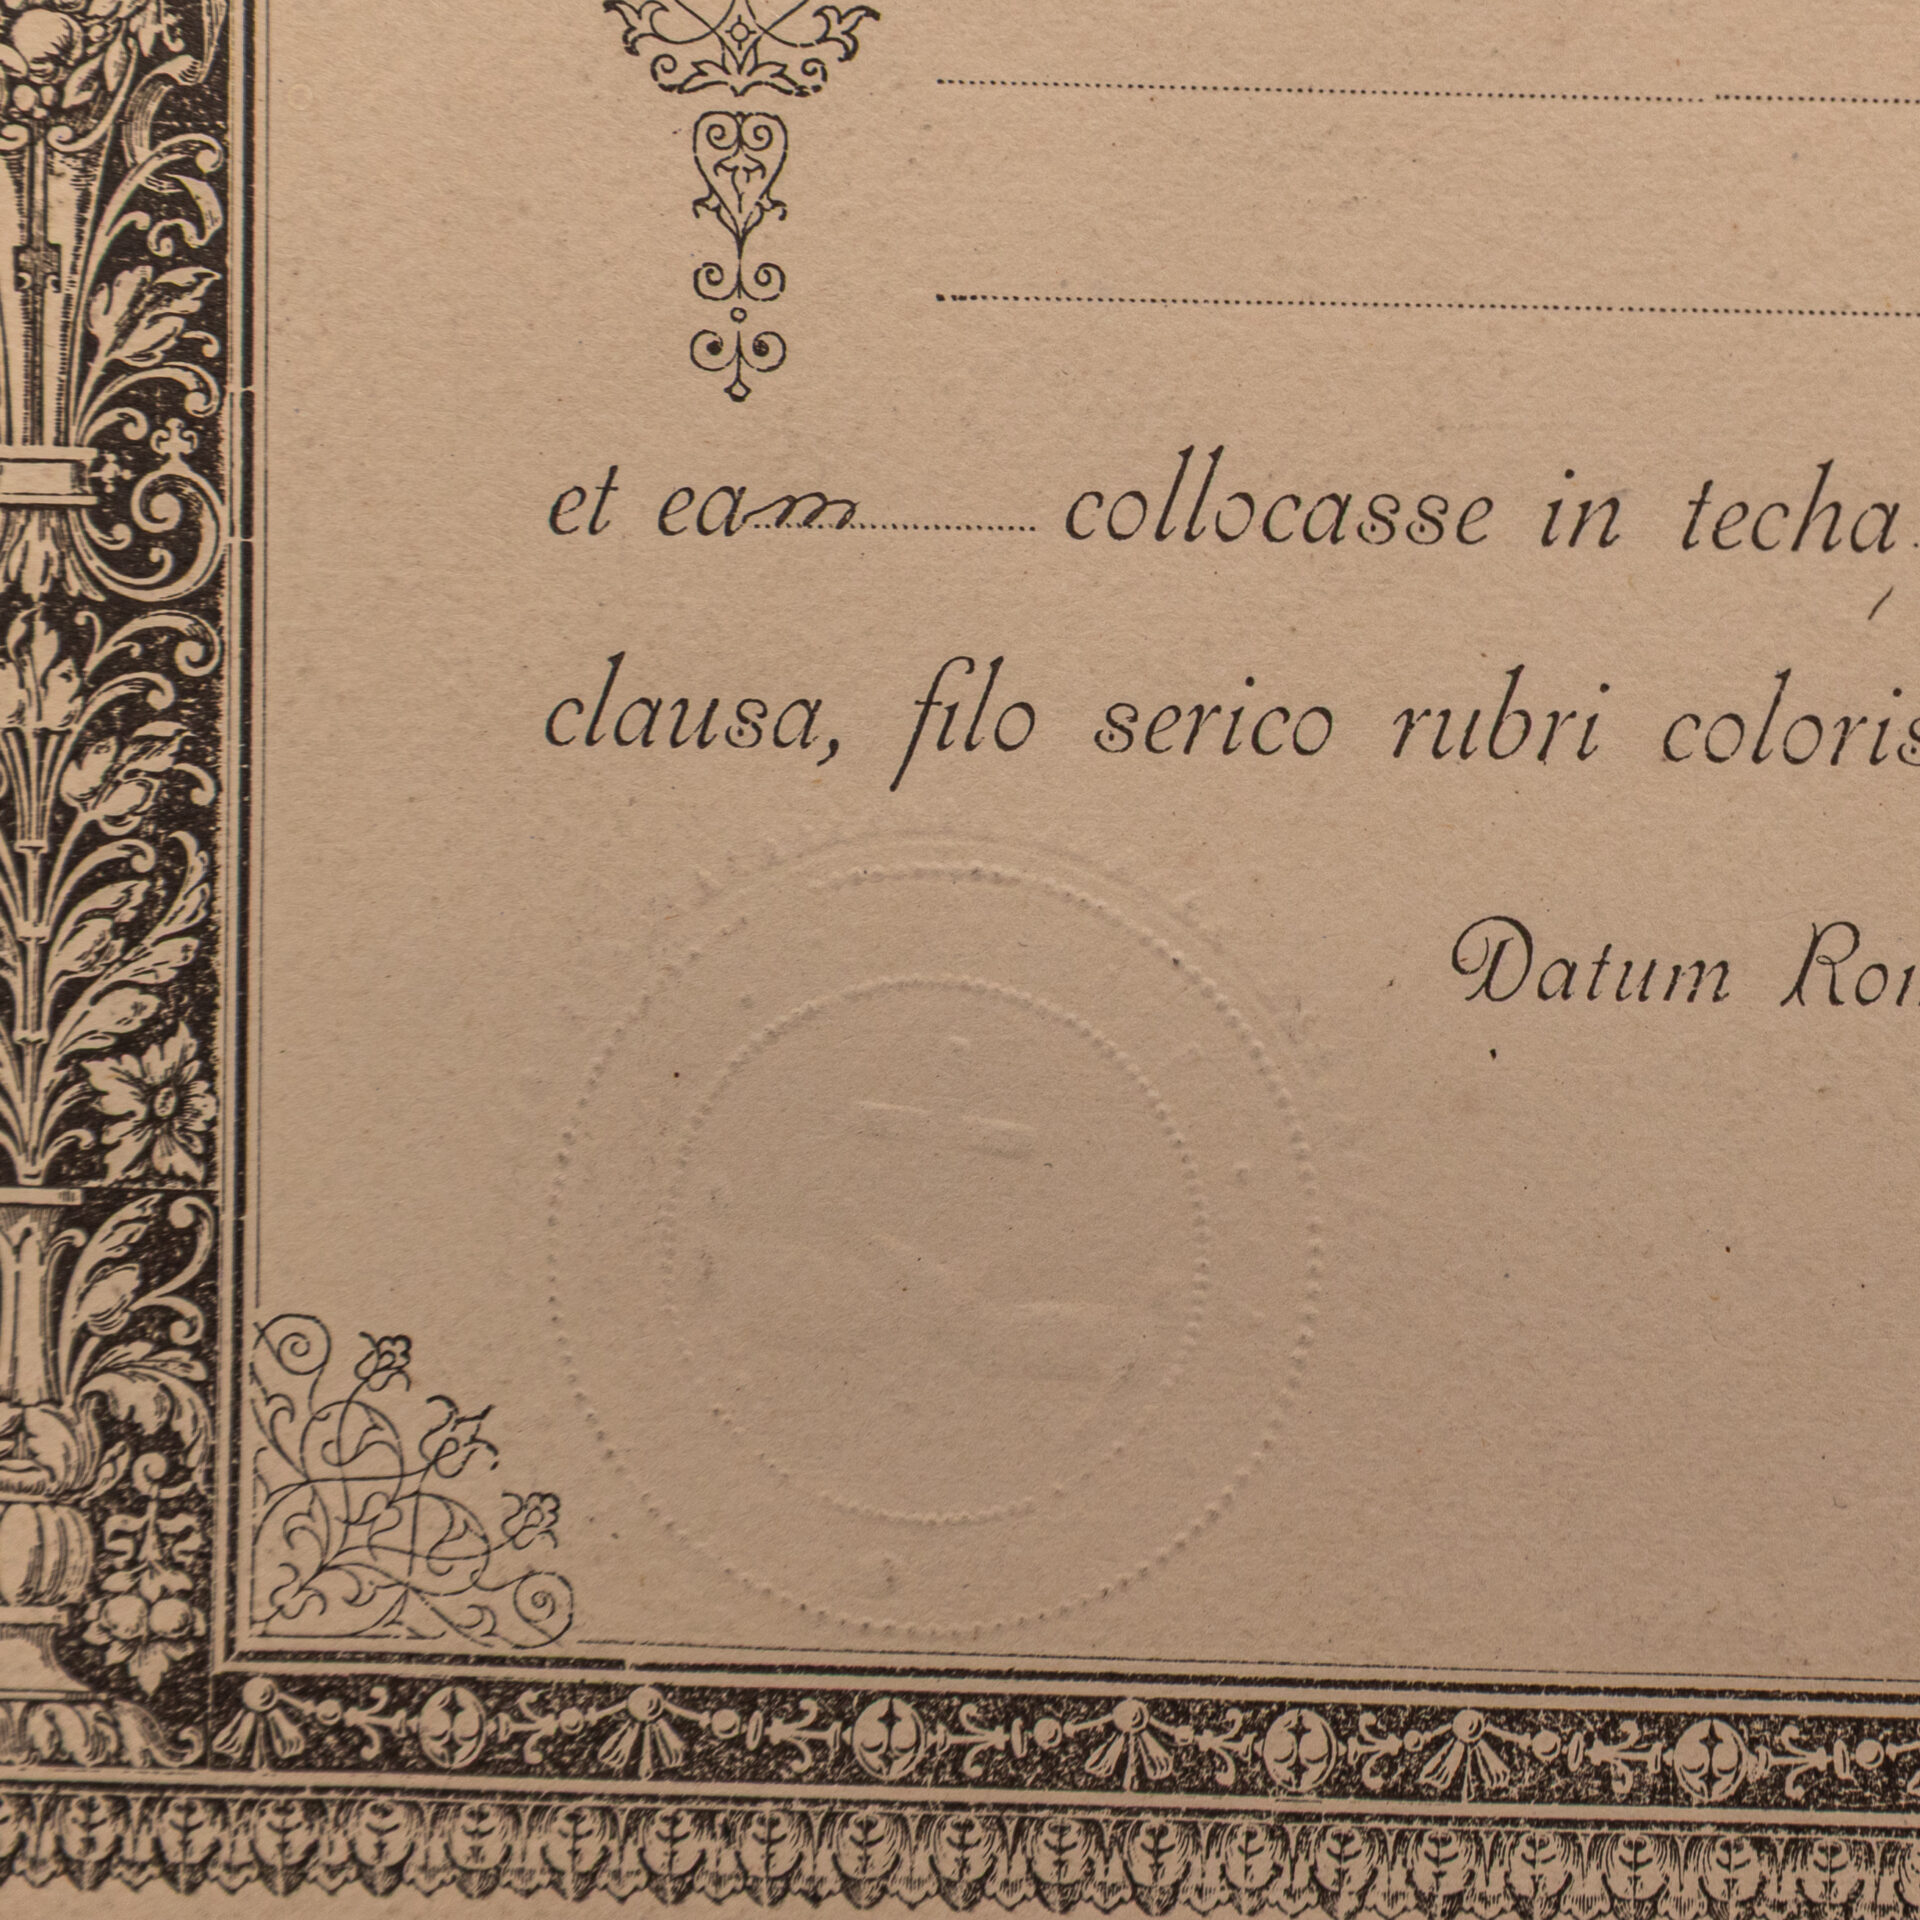 et eam collocasse in techa
clausa, filo serico rubri coloris
Datum Rom